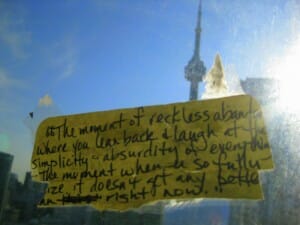 "The moment of reckless abandon
where you lean back & laugh at the
simplicity & absurdity of everything
The moment when u so fully
ize, it doesn't get any better
an right now."